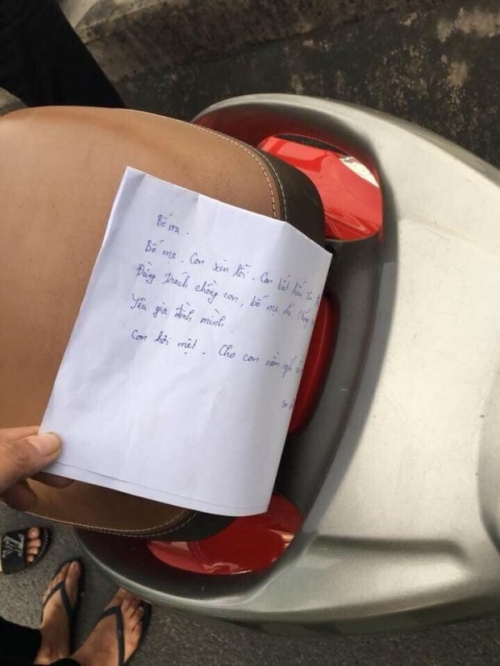 Bố mẹ.
Bố mẹ. Con xin lỗi. Con bất hiếu
Đừng trách chồng con, bố mẹ
Yêu gia đình mình.
Con hơi mệt. Cho con nằm nghỉ